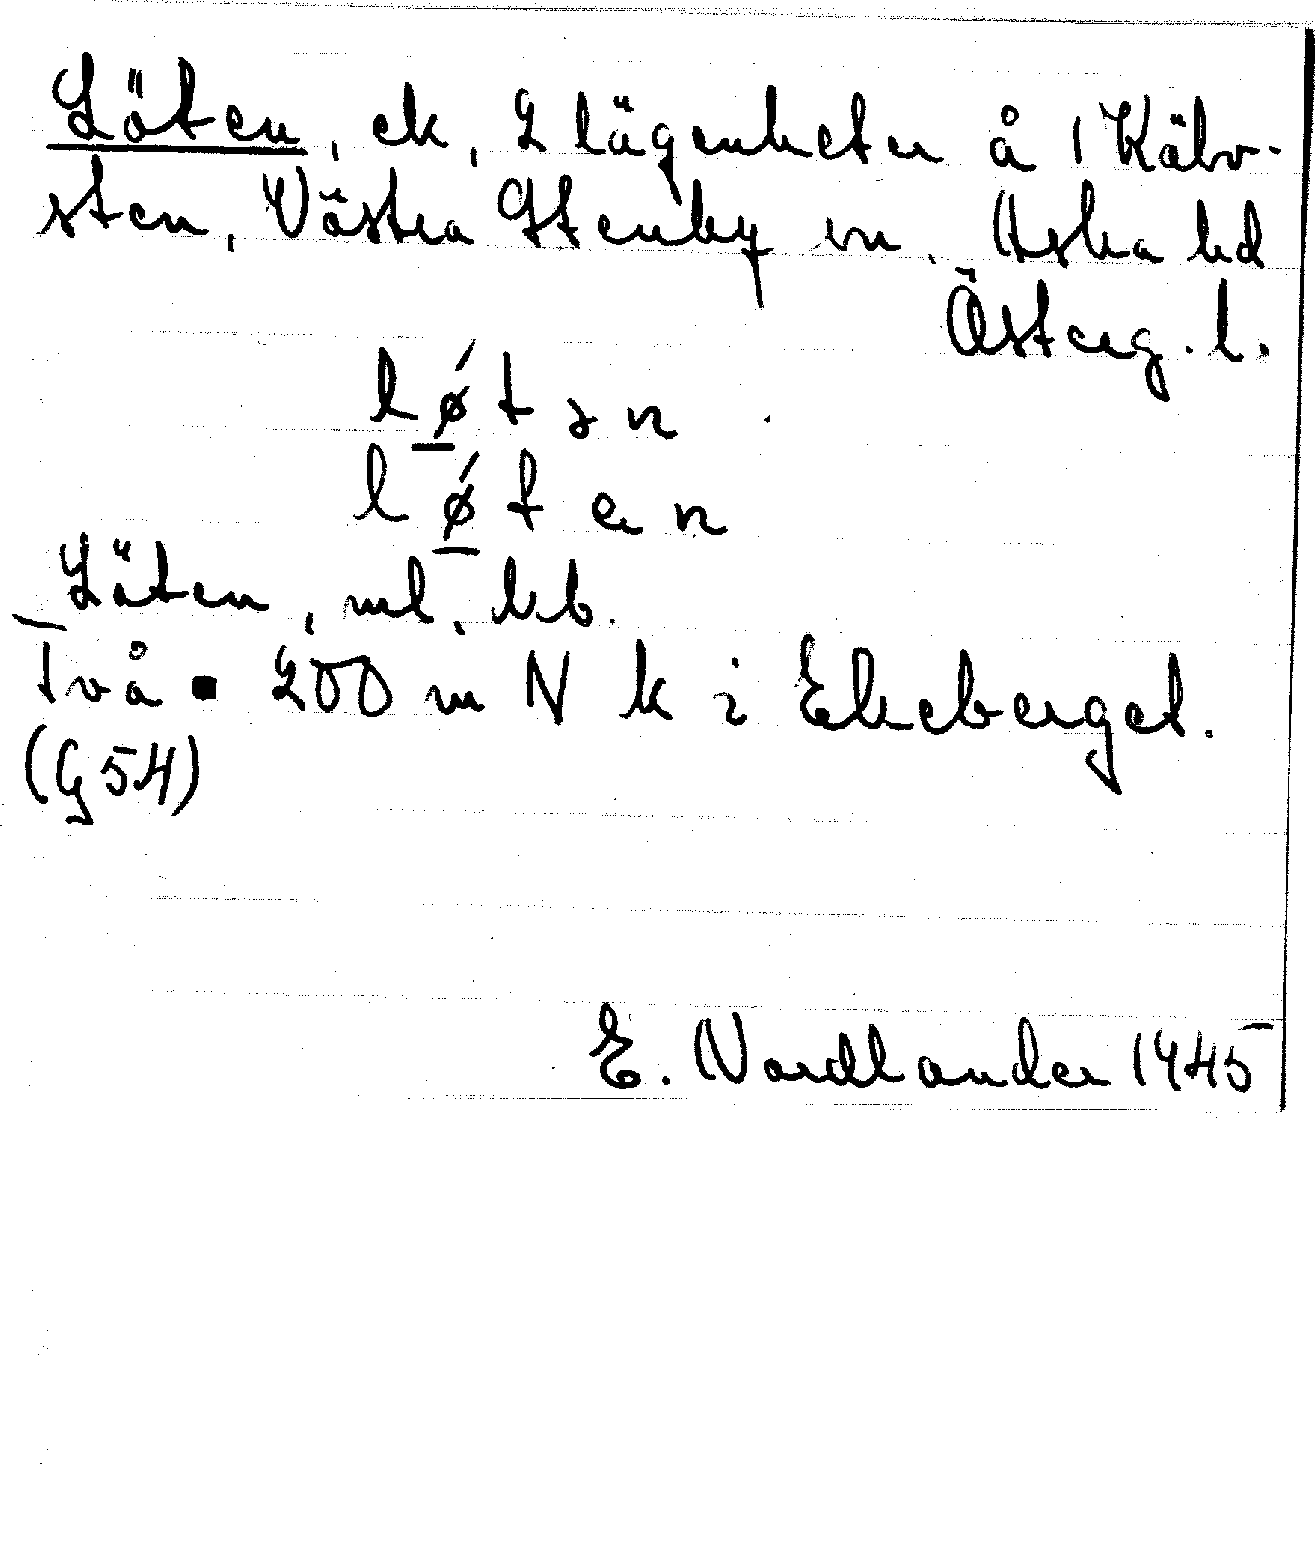 Löten, ek, 2 lägenheter å 1 Kälv-
sten, Västra Stenby sn, Aska hd
Österg. l.
lǿtən
lǿtan
Löten, ml, hb.
Två ▪ 200 m N k i Ekeberget.
(G 54)
E. Nordlander 1945